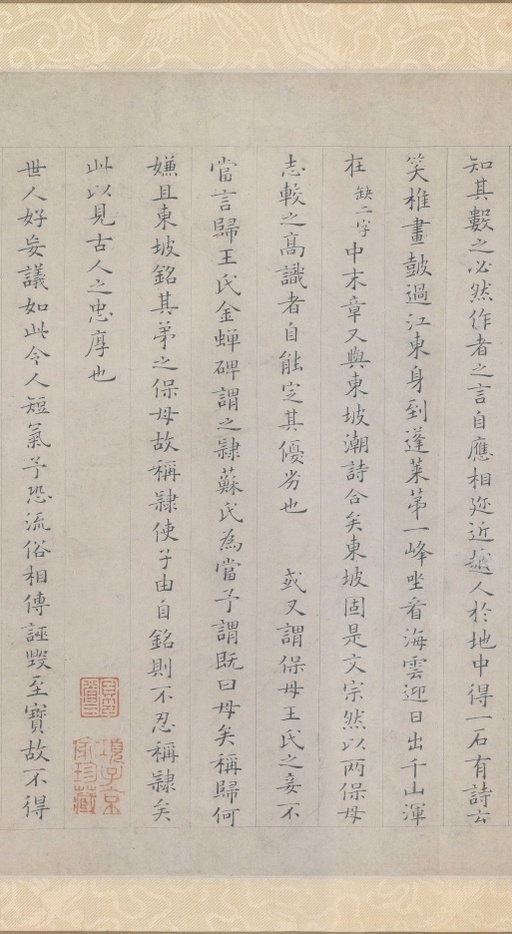 知其數之必然作者之言自應相近近越人於地中得一石有詩云
笑椎畫鼓過江東身到蓬萊第一峰坐看海雲迎日出千山渾
在缺二字中末章又與東坡潮詩合矣東坡固是文宗然以兩保母
志較之高識者自能定其優劣也 或又謂保母王氏之妾不
當言歸王氏金蟬碑謂之隸蘇氏為當予謂既曰母矣稱歸何
嫌且東坡銘其弟之保母故稱隸使子由自銘則不忍稱隸矣
此以見古人之忠厚也
世人好妄議如此令人短氣予恐流俗相傳誣毀至寶故不得
項子京
家珍藏